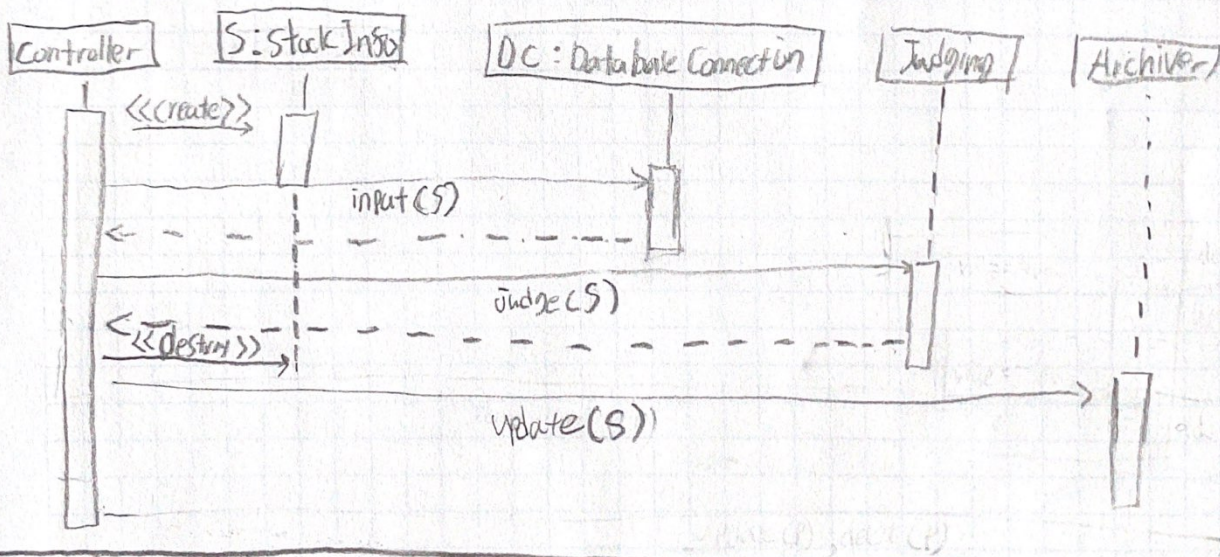 Controller
S: Stock Info
DC: Database Connection
Judging
Archiver
<<create>>
input(S)
judge(S)
<<destroy>>
update(S)